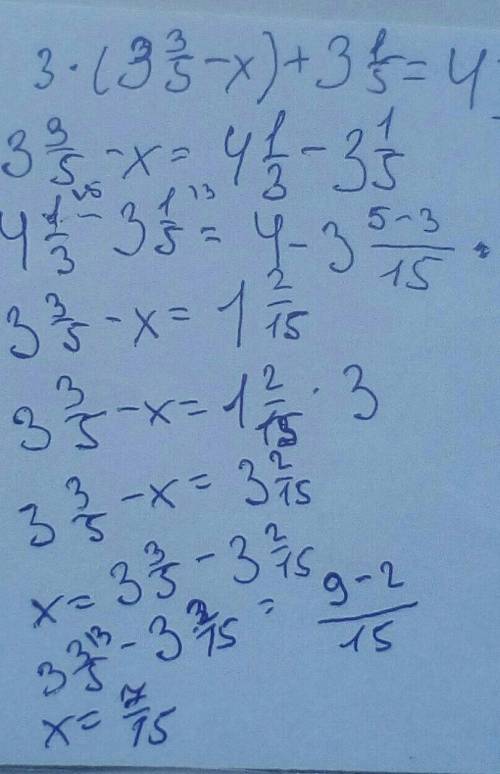 3 · (3 3/5 - x) + 3 1/5 = 4
3 3/5 - x = 4 1/3 - 3 1/5
4 1/3 - 3 1/5 = 4 - 3 5-3/15
3 3/5 - x = 1 2/15
3 3/5 - x = 1 2/15 · 3
3 3/5 - x = 3 2/15
x = 3 3/5 - 3 2/15
3 3/5 - 3 2/15 = 9-2/15
x = 7/15